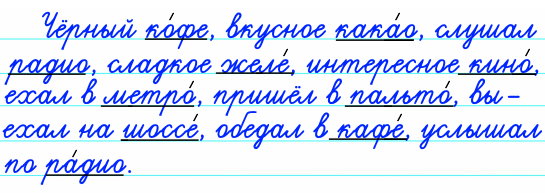 Чёрный ко́фе, вкусное кака́о, слушал
радио, сладкое желе́, интересное кино́,
ехал в метро́, пришёл в пальто́, вы-
ехал на шоссе́, обедал в кафе́, услышал
по ра́дио.